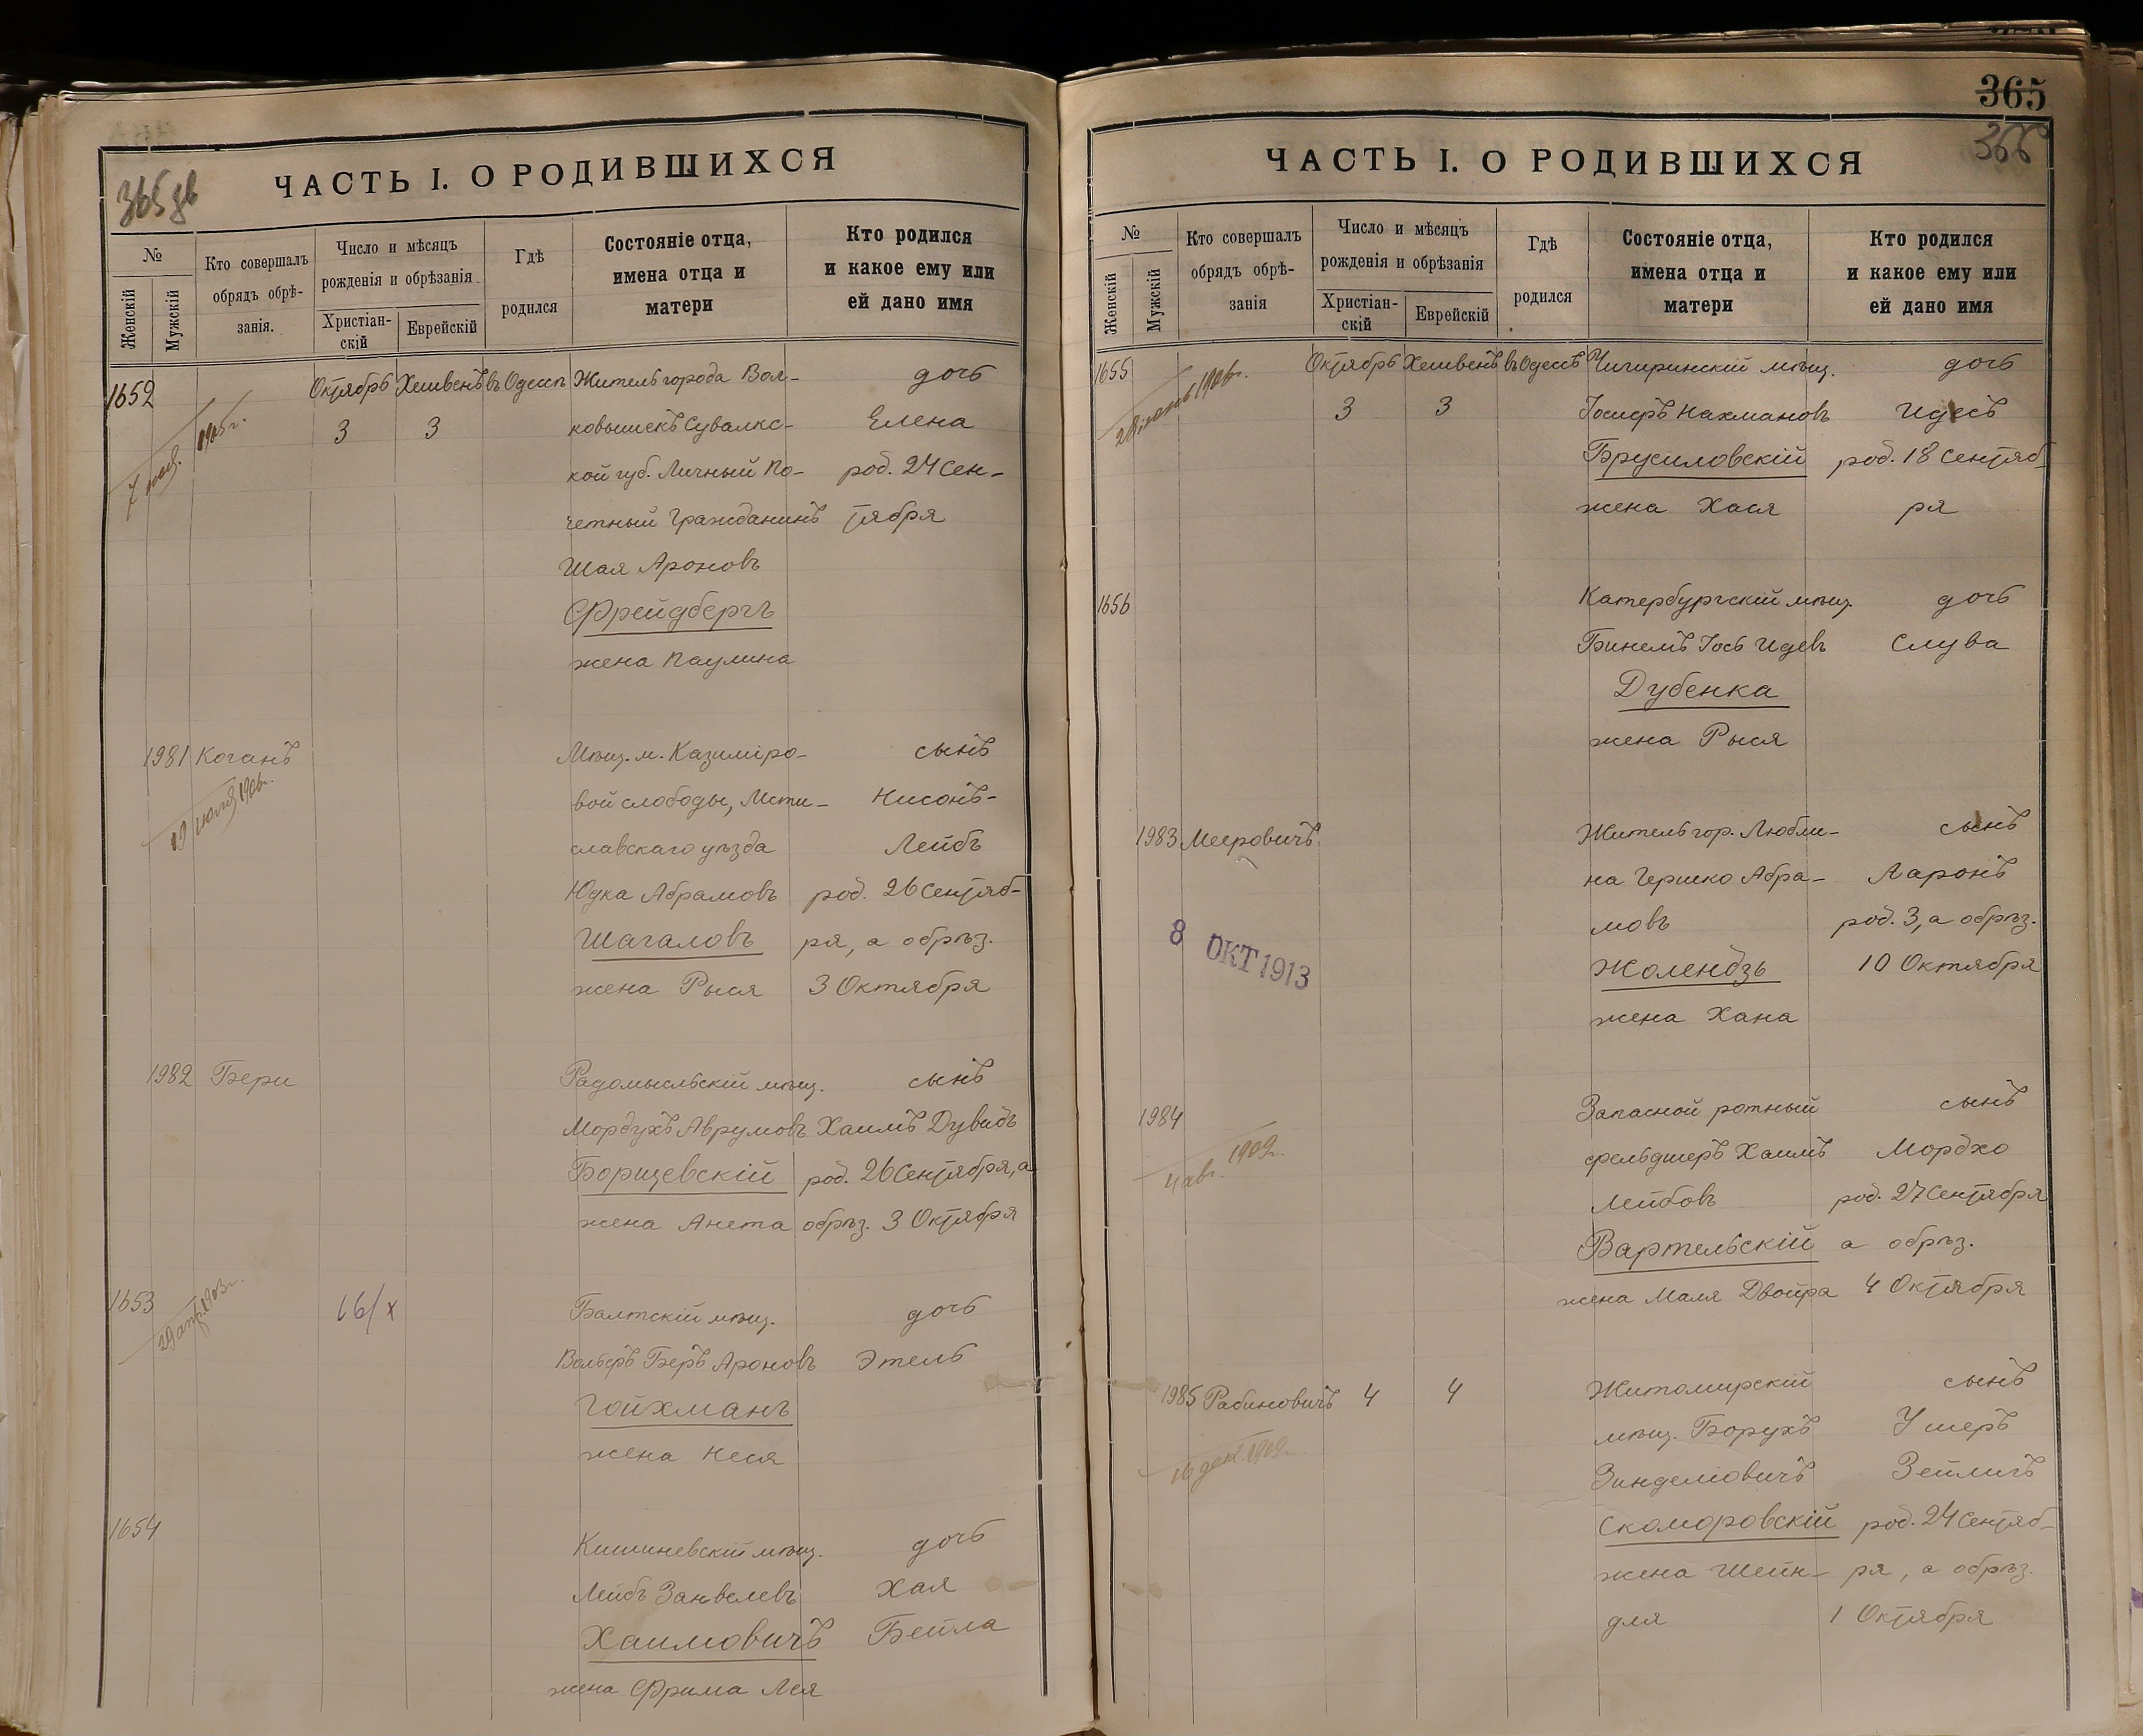 ЧАСТЬ I. О РОДИВШИХСЯ
365 дв
№
Женскій
Мужскій
Кто совершалъ
обрядъ обрѣ-
занія.
Число и мѣсяцъ
рожденія и обрѣзанія
Христіан-
скій
Еврейскій
Гдѣ
родился
Состояніе отца,
имена отца и
матери
Кто родился
и какое ему или
ей дано имя
1652 Октябрь Хешвенъ въ Одессѣ Житель города Вол- дочь
1905 г.
3 3 ковышекъ Сувалкс- Елена
кой губ. Личный По- род. 24 Сен-
четный Гражданинъ тября
Шая Ароновъ
Фрейдбергъ
жена Паулина
1981 Коганъ Мѣщ. м. Казиміро- сынъ
вой слободы, Мсти- Нисонъ-
славскаго уѣзда Лейбъ
Юдка Абрамовъ род. 26 Сентяб-
Шагаловъ ря, а обрѣз.
жена Рыся 3 Октября
1982 Бери Радомысльскій мѣщ. сынъ
Мордухъ Аврумовъ Хаимъ Дувидъ
Борщевскій род. 26 Сентября, а
жена Анета обрѣз. 3 Октября
1653 16/х Балтскій мѣщ. дочь
Вольфъ Беръ Ароновъ Этель
Гойхманъ
жена Неся
1654 Кишиневскій мѣщ. дочь
Лейбъ Занвелевъ Хая
Хаимовичъ Бейла
жена Фрима Лея
365
366
ЧАСТЬ I. О РОДИВШИХСЯ
№
Женскій
Мужскій
Кто совершалъ
обрядъ обрѣ-
занія
Число и мѣсяцъ
рожденія и обрѣзанія
Христіан-
скій
Еврейскій
Гдѣ
родился
Состояніе отца,
имена отца и
матери
Кто родился
и какое ему или
ей дано имя
1655 Октябрь Хешвенъ въ Одессѣ Чигиринскій мѣщ. дочь
3 3 Іосифъ Нахмановъ Идесъ
Брусиловскій род. 18 Сентяб-
жена Хася ря
1656 Катербургскій мѣщ. дочь
Бинемъ Іось Идевъ Слува
Дубенка
жена Рыся
1983 Мееровичъ Житель гор. Любли- сынъ
на Гершко Абра- Ааронъ
мовъ род. 3, а обрѣз.
8 ОКТ 1913
Жолендзь 10 Октября
жена Хана
1984 Запасной ротный сынъ
4 авг. 1909 г.
фельдшеръ Хаимъ Мордхо
Лейбовъ род. 27 Сентября
Вартельскій а обрѣз.
жена Маля Двойра 4 Октября
1985 Рабиновичъ 4 4 Житомирскій сынъ
мѣщ. Борухъ Ушеръ
16 дек 1909
Зинделіовичъ Зейлигъ
Скоморовскій род. 24 Сентяб-
жена Шейн- ря, а обрѣз.
для 1 Октября